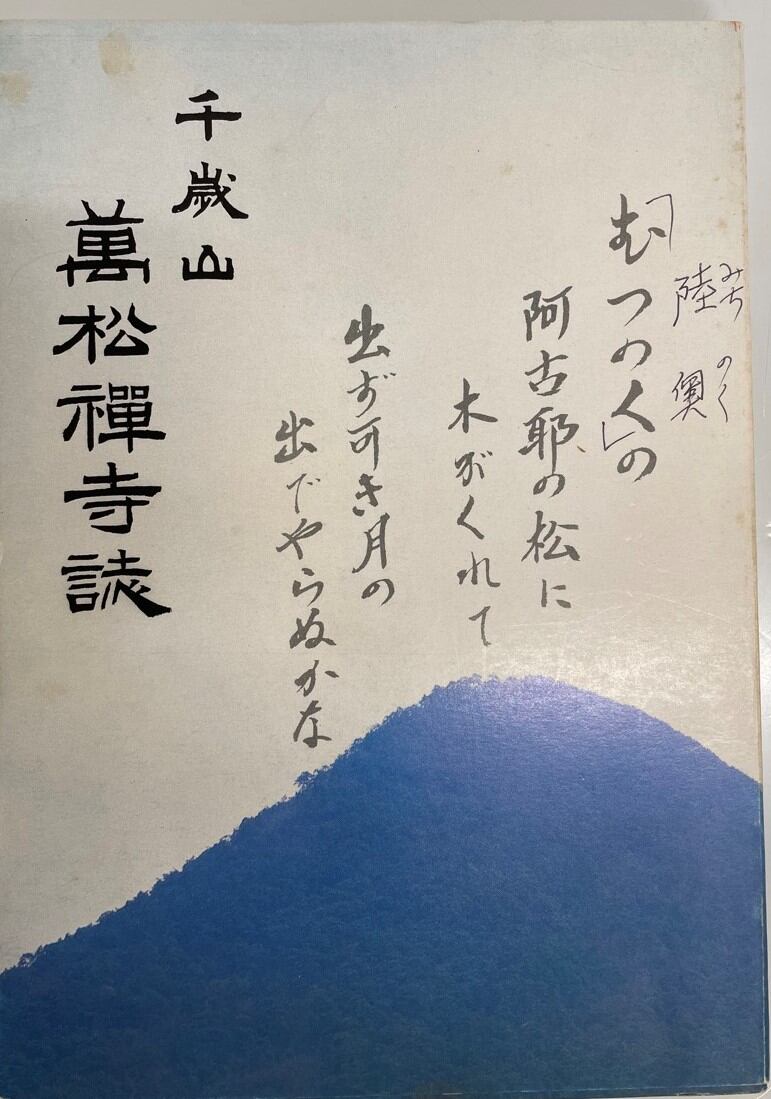 みちのく
陸奥
「むつのく」の
阿古耶の松に
木がくれて
出ず可き月の
出でやらぬかな
千歳山
萬松禪寺誌